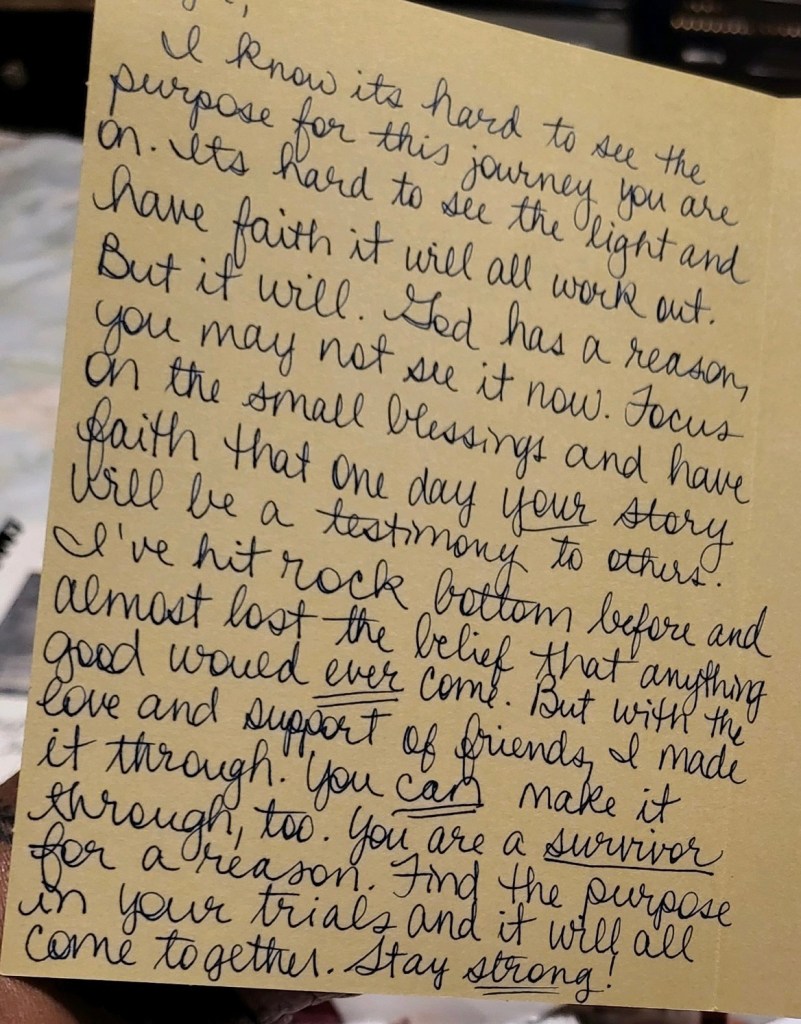 I know its hard to see the
purpose for this journey you are
on. Its hard to see the light and
have faith it will all work out.
But it will. God has a reason,
you may not see it now. Focus
on the small blessings and have
faith that one day your story
will be a testimony to others.
I've hit rock bottom before and
almost lost the belief that anything
good would ever come. But with the
love and support of friends, I made
it through. You can make it
through, too. You are a survivor
for a reason. Find the purpose
in your trials and it will all
come together. Stay strong!